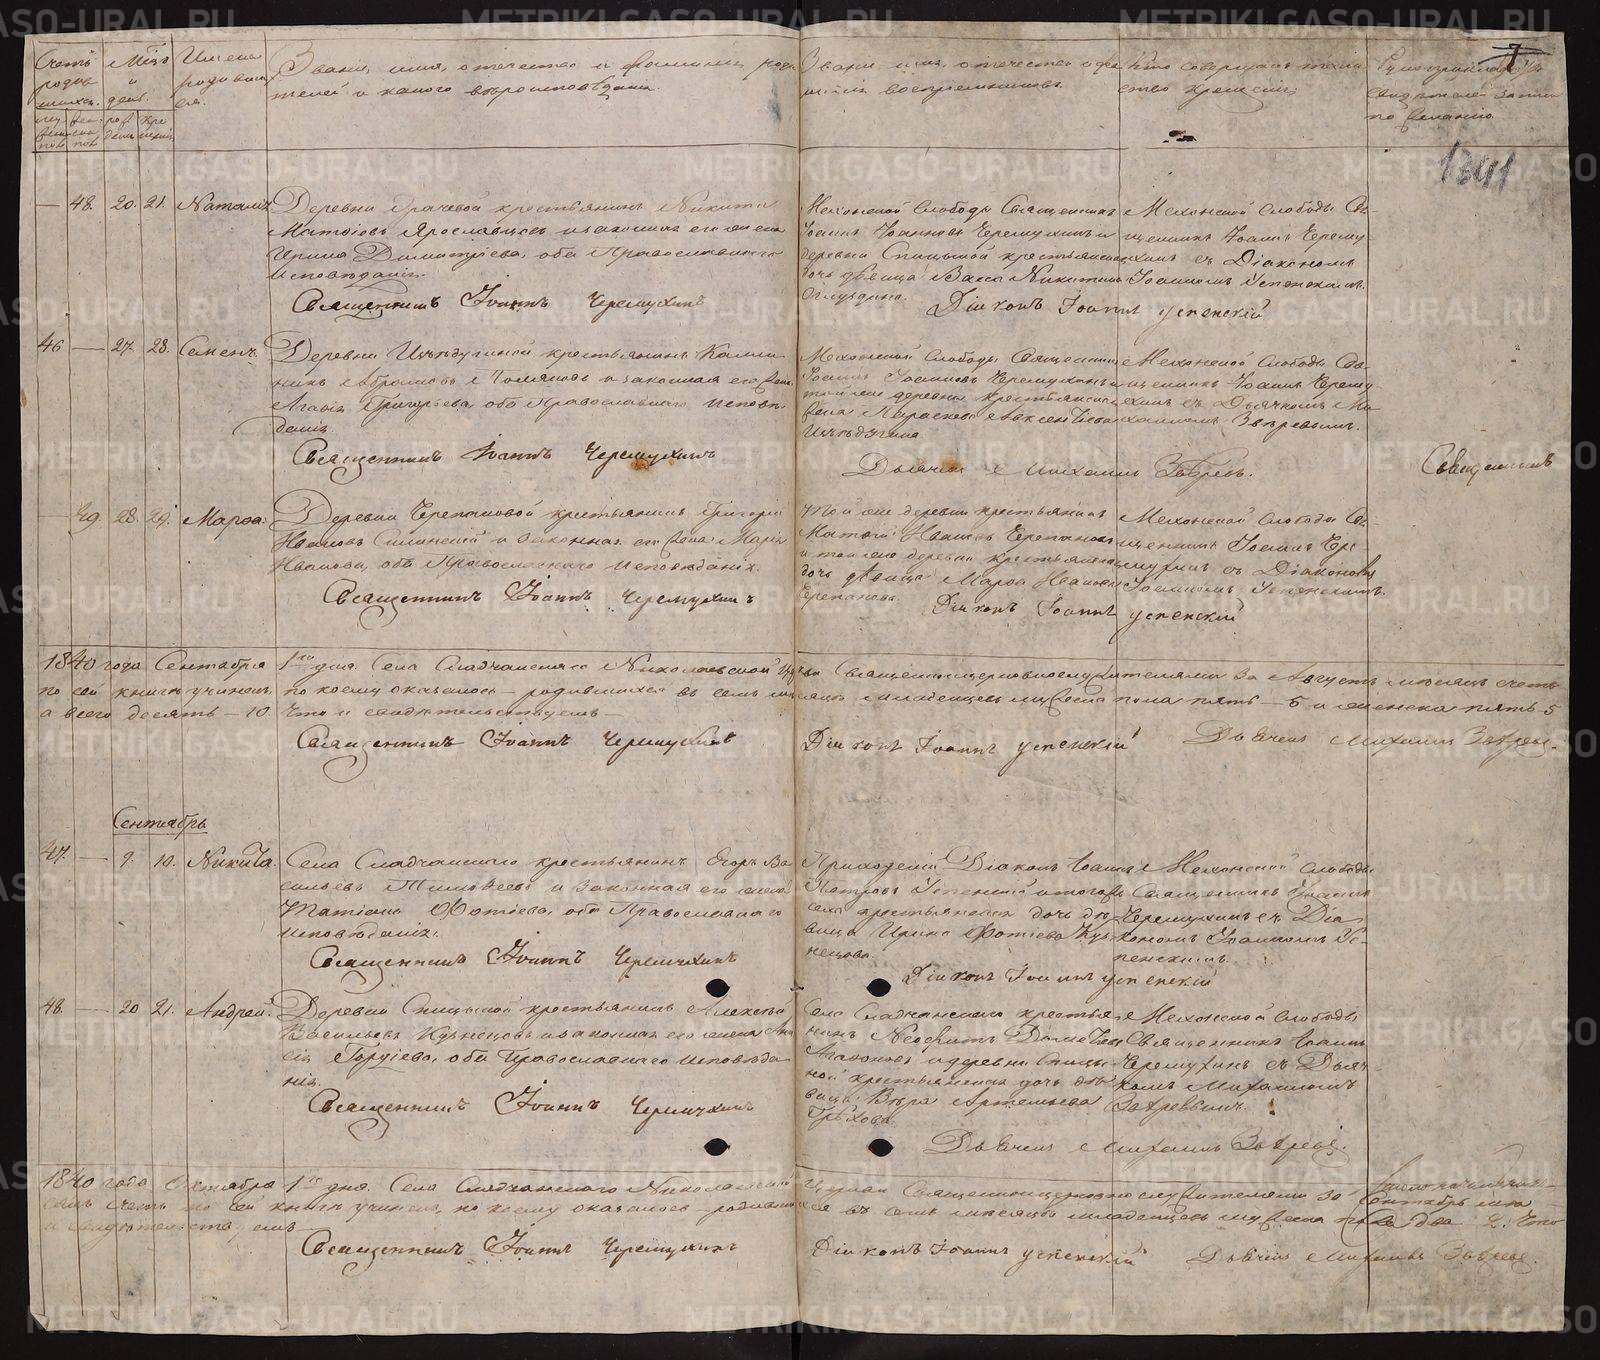 Счетъ родив­шихся.
муж. пол.
жен. пол.
Мѣсяцъ и день.
рожденія
крещенія
Имена родившихся.
Званіе, имя, отечество и фамилія роди-
телей и какого вѣроисповѣданія.
Званіе, имя, отечество и фа-
милія воспріемниковъ.
Кто совершалъ таин-
ство крещенія
Рукоприкладство
свидѣтелей записи
по желанію.
7
1341
— 48. 20. 21. Наталія
Деревни Грачевой крестьянинъ Никита
Матѳіевъ Ярославцовъ и законная его жена
Ирина Димитріева, оба Православнаго
Исповѣданія.
Священникъ Іоаннъ Черемухинъ
Мехонской Слободы Священникъ
Іоаннъ Іоанновъ Черемухинъ и
деревни Спицыной крестьянская
дочь дѣвица Васса Никитина
Оглуздина.
Мехонской Слободы Свя-
щенникъ Іоаннъ Черему-
хинъ съ Діакономъ
Іоанномъ Успенскимъ.
Діаконъ Іоаннъ Успенскій
46 — 27. 28. Семенъ.
Деревни крестьянинъ Калли-
никъ Абрамовъ и законная его жена
Агаѳія Григорьева, оба Православнаго Исповѣ-
данія
Священникъ Іоаннъ Черемухинъ
Мехонской Слободы Священникъ
Іоаннъ Іоанновъ Черемухинъ и
той же деревни крестьянская
жена Параскева Авксентіева
Мехонской Слободы Свя-
щенникъ Іоаннъ Черему-
хинъ съ Дьячкомъ Ми-
хаиломъ Звѣревымъ.
Дьячекъ Михаилъ Звѣревъ.
Священникъ
— 49 28. 29. Марѳа.
Деревни Черепановой крестьянинъ Григорій
Ивановъ и законная его жена Марія
Иванова, оба Православнаго Исповѣданія.
Священникъ Іоаннъ Черемухинъ
Той же деревни крестьянинъ
Матѳій Ивановъ Черепановъ
и той же деревни крестьянская
дочь дѣвица Марѳа Иванова
Черепанова.
Мехонской Слободы Свя-
щенникъ Іоаннъ Чере-
мухинъ съ Діакономъ
Іоанномъ Успенскимъ.
Діаконъ Іоаннъ Успенскій
1840 года Сентября 1го дня. Села Сладчанскаго Николаевской Церкви Священноцерковнослужителями за Августъ мѣсяцъ счетъ
по сей книгѣ учиненъ, по коему оказалось — родившихся въ семъ мѣсяцѣ младенцевъ мужеска пола пять — 5 и женска пять — 5
а всего десять — 10. Что и свидѣтельствуемъ —
Священникъ Іоаннъ Черемухинъ Діаконъ Іоаннъ Успенскій Дьячекъ Михаилъ Звѣревъ.
Сентябрь
47. — 9. 10. Никита.
Села Сладчанскаго крестьянинъ Егоръ Ва-
сильевъ Тимоѳеевъ и законная его жена
Татіана Фотіева, оба Православнаго
Исповѣданія.
Священникъ Іоаннъ Черемухинъ
Приходскій Діаконъ Іоаннъ
Петровъ Успенскій и того же
села крестьянская дочь дѣ-
вица Ирина Фотіева Куз-
нецова.
Мехонской Слободы
Священникъ Іоаннъ
Черемухинъ съ Діа-
кономъ Іоанномъ Ус-
пенскимъ.
Діаконъ Іоаннъ Успенскій
48. — 20 21. Андрей.
Деревни Спицыной крестьянинъ Алексѣй
Васильевъ Кузнецовъ и законная его жена Ана-
сія Гордіева, оба Православнаго Исповѣда-
нія.
Священникъ Іоаннъ Черемухинъ
Села Сладчанскаго крестья-
нинъ Неофитъ
Агафоновъ и деревни Спицы-
ной крестьянская дочь дѣ-
вица Вѣра Артемьева
Грѣхова
Мехонской Слободы
Священникъ Іоаннъ
Черемухинъ съ Дьяч-
комъ Михаиломъ
Звѣревымъ.
Дьячекъ Михаилъ Звѣревъ.
1840 года Октября 1го дня. Села Сладчанскаго Николаевской Церкви Священноцерковнослужителями за Сентябрь мѣся-
цъ счетъ по сей книгѣ учиненъ, по коему оказалось — родившихся въ семъ мѣсяцѣ младенцевъ мужеска пола два 2. Что
и свидѣтельствуемъ —
Священникъ Іоаннъ Черемухинъ Діаконъ Іоаннъ Успенскій Дьячекъ Михаилъ Звѣревъ.
METRIKI.GASO-URAL.RU